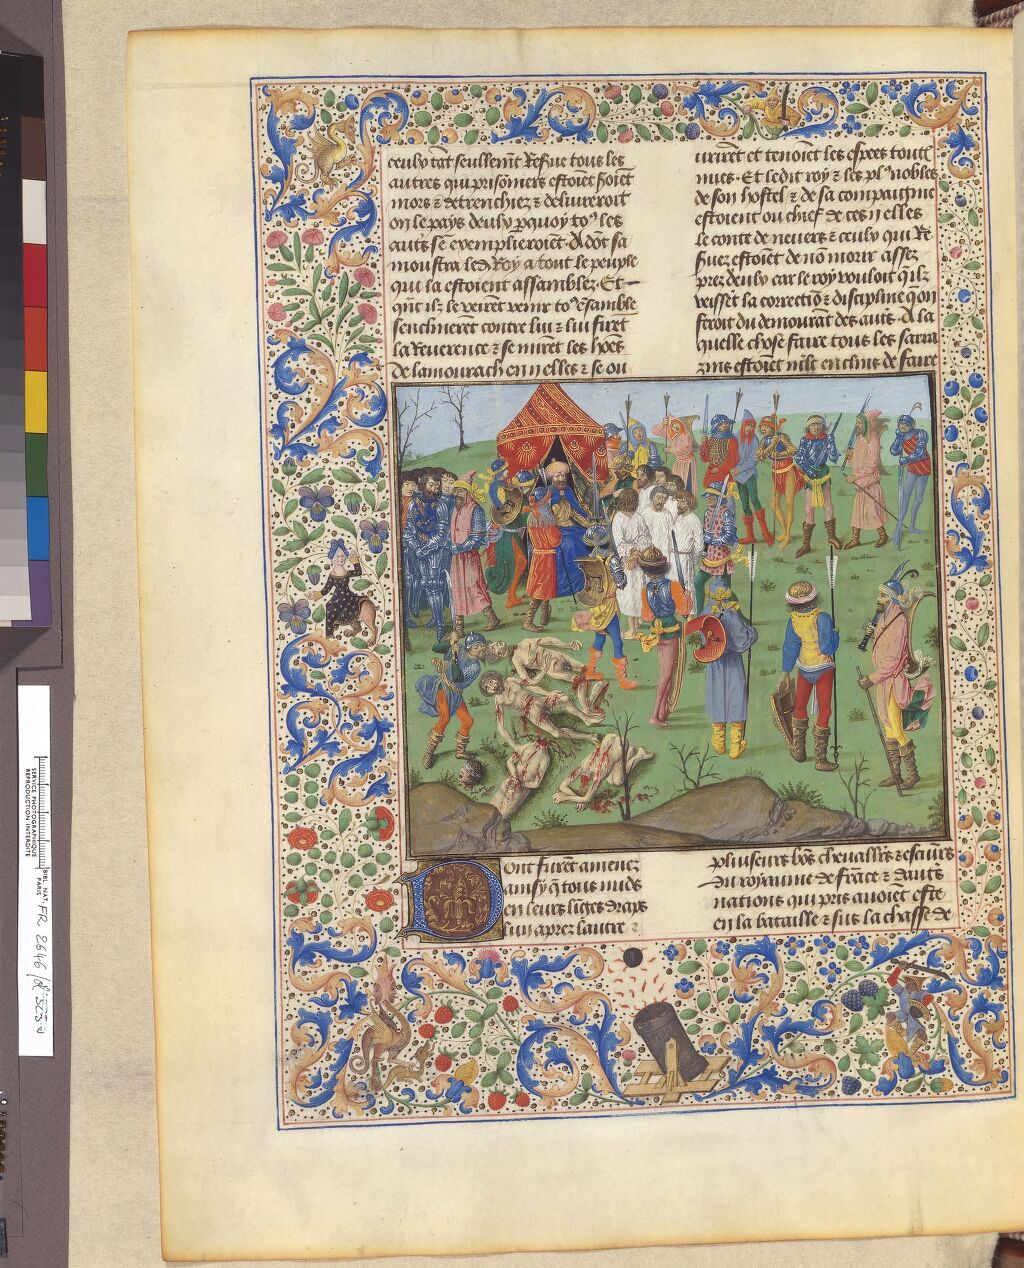 ceulx tãt seullem̃t Resñe tous les
autres qui prisõniers estoiẽt soiẽt
mors ⁊ detrenchiez ⁊ deliureront
on le pays deulx pquoy toꝰ les
auts̃ sẽ exemplieroiẽt. A dõt sa
moustra led Roy a tout le peuple
qui la estoient assamblez. Et
qũt ilz le virẽt venir toꝰ ẽsamble
senclinerẽt contre lui ⁊ lui firẽt
la Reuerence ⁊ se mirẽt les hões
de lamourach en ii elles ⁊ se ou
urirẽt et tenoiẽt les espees toutẽ
nues. Et ledit roy ⁊ les plꝰ nobles
de son hostel ⁊ de sa compaignie
estoient ou chief de ces ii elles
le conte de neuers ⁊ ceulx qui Re
suez estoiẽt de nõ morir assez
prez deulx car le roy vouloit q̃ ilz
veissẽt la correctiõ ⁊ discipline q̃ on
feroit du demourãt des auts̃. A la
quelle chose faire tous les sarra
zins estoiẽt mlt̃ enclins de faire
Dont furẽt amenez
ainsy q̃ tous nuds
en leurs liges draps
lun aprez lautre
plusieurs bõs cheualiers ⁊ escuirs
du royaume de frãce ⁊ dauts̃
nations qui pris auoiẽt este
en la bataille ⁊ sus la chasse de
SERVICE PHOTOGRAPHIQUE
REPRODUCTION INTERDITE
BIBL. NAT.
PARIS
FR 2646